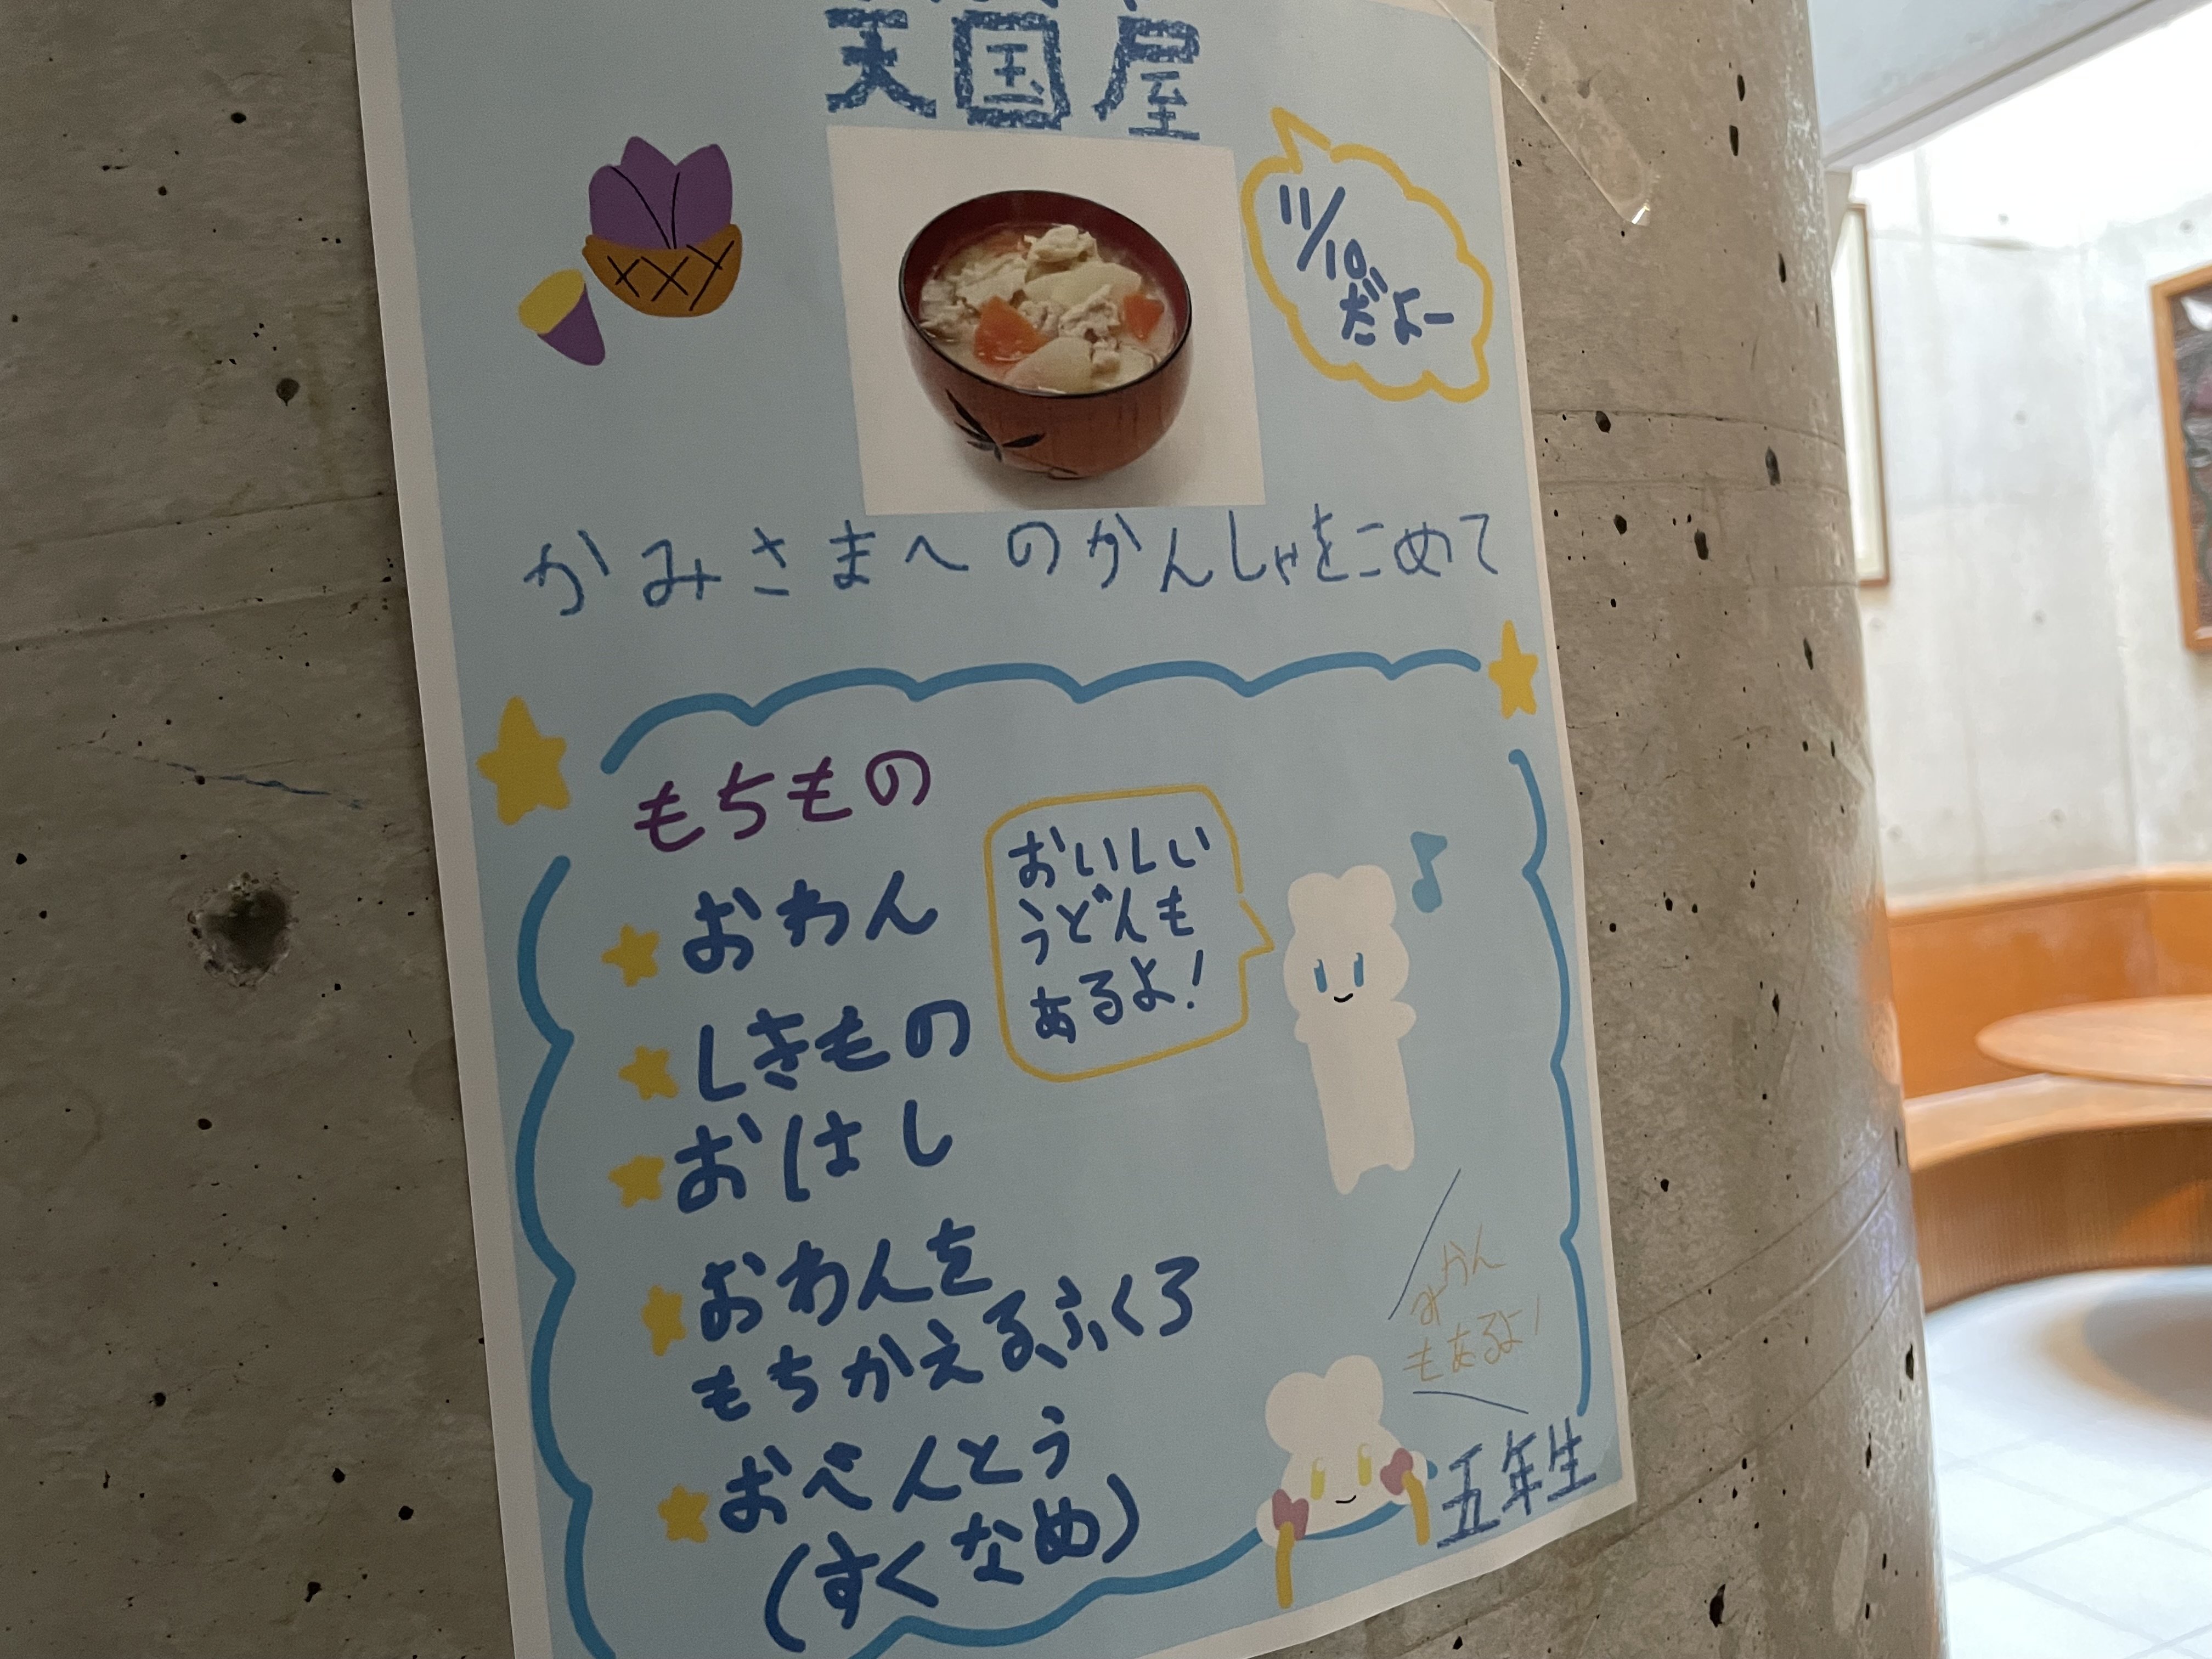 天国屋
11/10
だよー
かみさまへのかんしゃをこめて
もちもの
おわん
しきもの
おはし
おわんを
もちかえるふくろ
おべんとう
(すくなめ)
おいしい
うどんも
あるよ!
みかん
もあるよ!
五年生